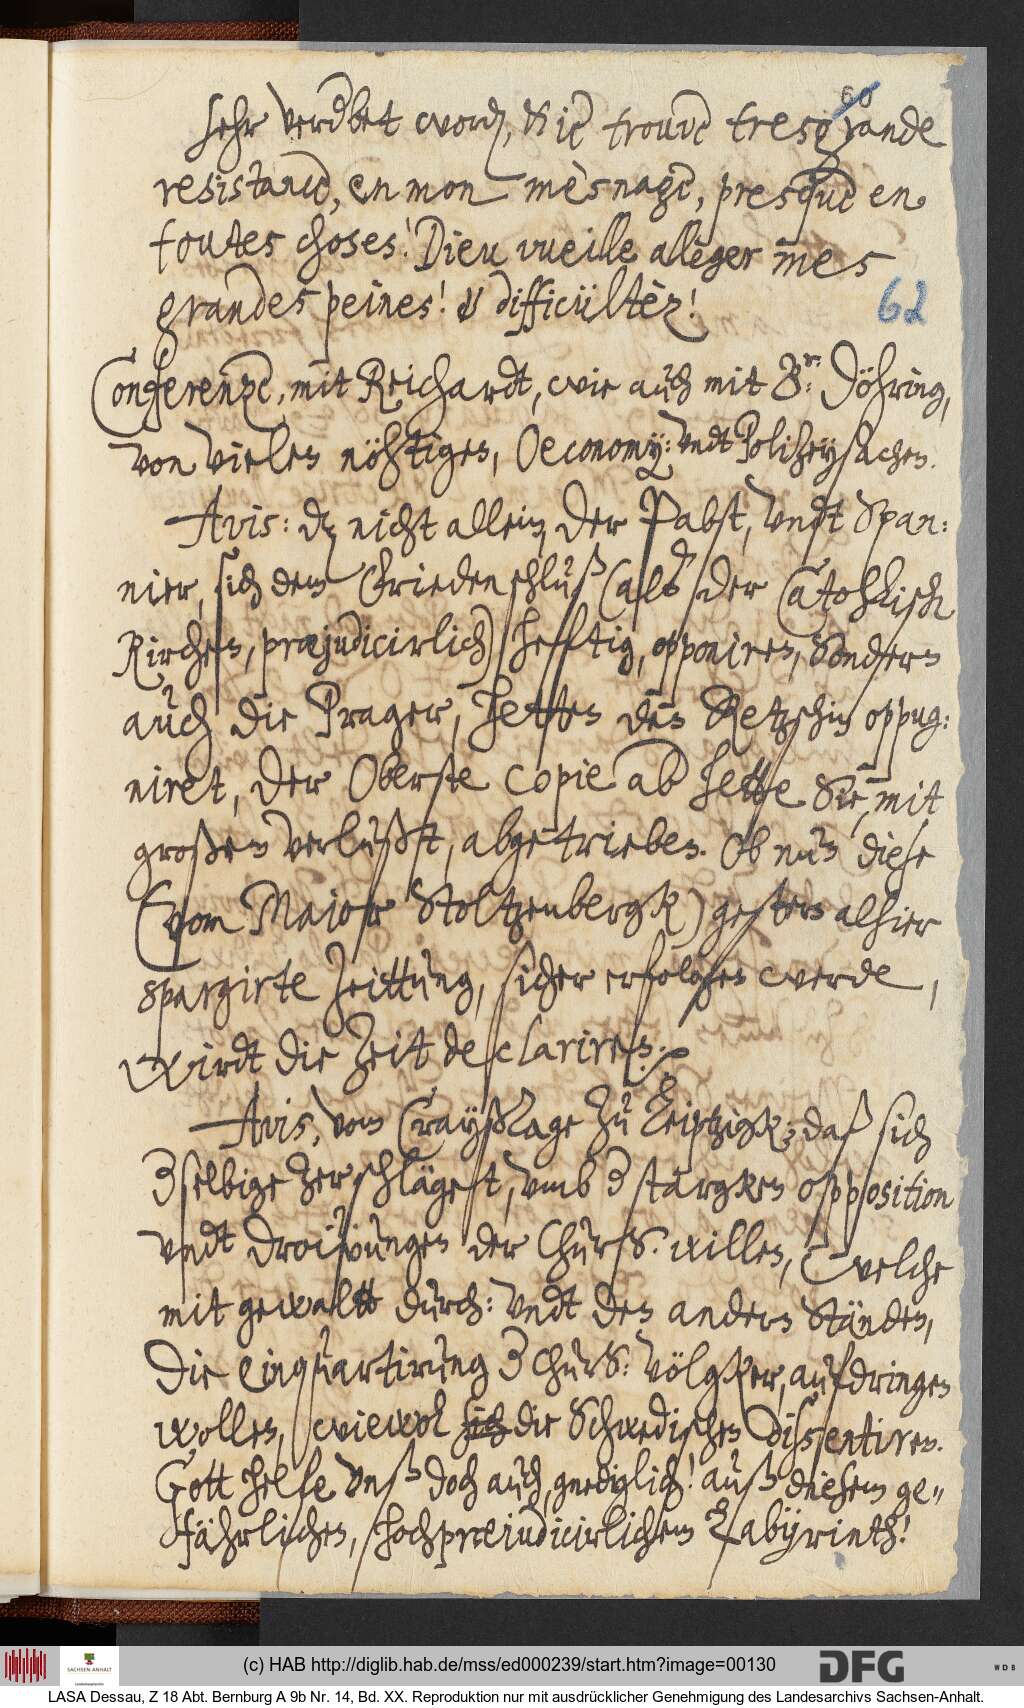 60
sehr verderbet word, & je trouve tresgrande
resistance, en mon mèsnage, presque en
toutes choses! Dieu vueille allèger mes
grandes peines! & difficültèz!
62
Conferentze, mit Reichardt, wie auch mit Dr: Döhring,
von vielen nöhtigen, Oeconomy: vndt Polizeysachen.
Avis: dz nicht allein, der Pabst, vndt Span:
nier, sich dem Friedenschluß (alß der Catohlisch
Kirchen, præjudicirlich) hefftig, opponiren, Sondern
auch die Prager, hetten den Retzschin oppug:
niret, der Oberste Copie ab hette Sie, mit
großem verlußt, abgetrieben. Ob nun diese
(vom Major Stoltzenbergk) gestern alhier
spargirte Zeittung, sicher erfolgen werde,
wirdt die Zeit declariren.
Avis, vom CraysTage zu Leiptzigk; daß sich
derselbige zerschläget, vmb der stargken opposition
vndt Droüwungen der ChurS. willen, welche
mit gewaltt durch: vndt den andern Ständen,
Die einquartirung der ChurS: völgker, aufdringen
wollen, wiewol sich die Schwedischen dissentiren.
Gott helfe vnß doch auch, genediglich! auß diesem ge„
fährlichen, hochpræjudicirlichem Labyrinth!
(c) HAB http://diglib.hab.de/mss/ed000239/start.htm?image=00130
DFG
WDB
SACHSEN-ANHALT
LASA Dessau, Z 18 Abt. Bernburg A 9b Nr. 14, Bd. XX. Reproduktion nur mit ausdrücklicher Genehmigung des Landesarchivs Sachsen-Anhalt.